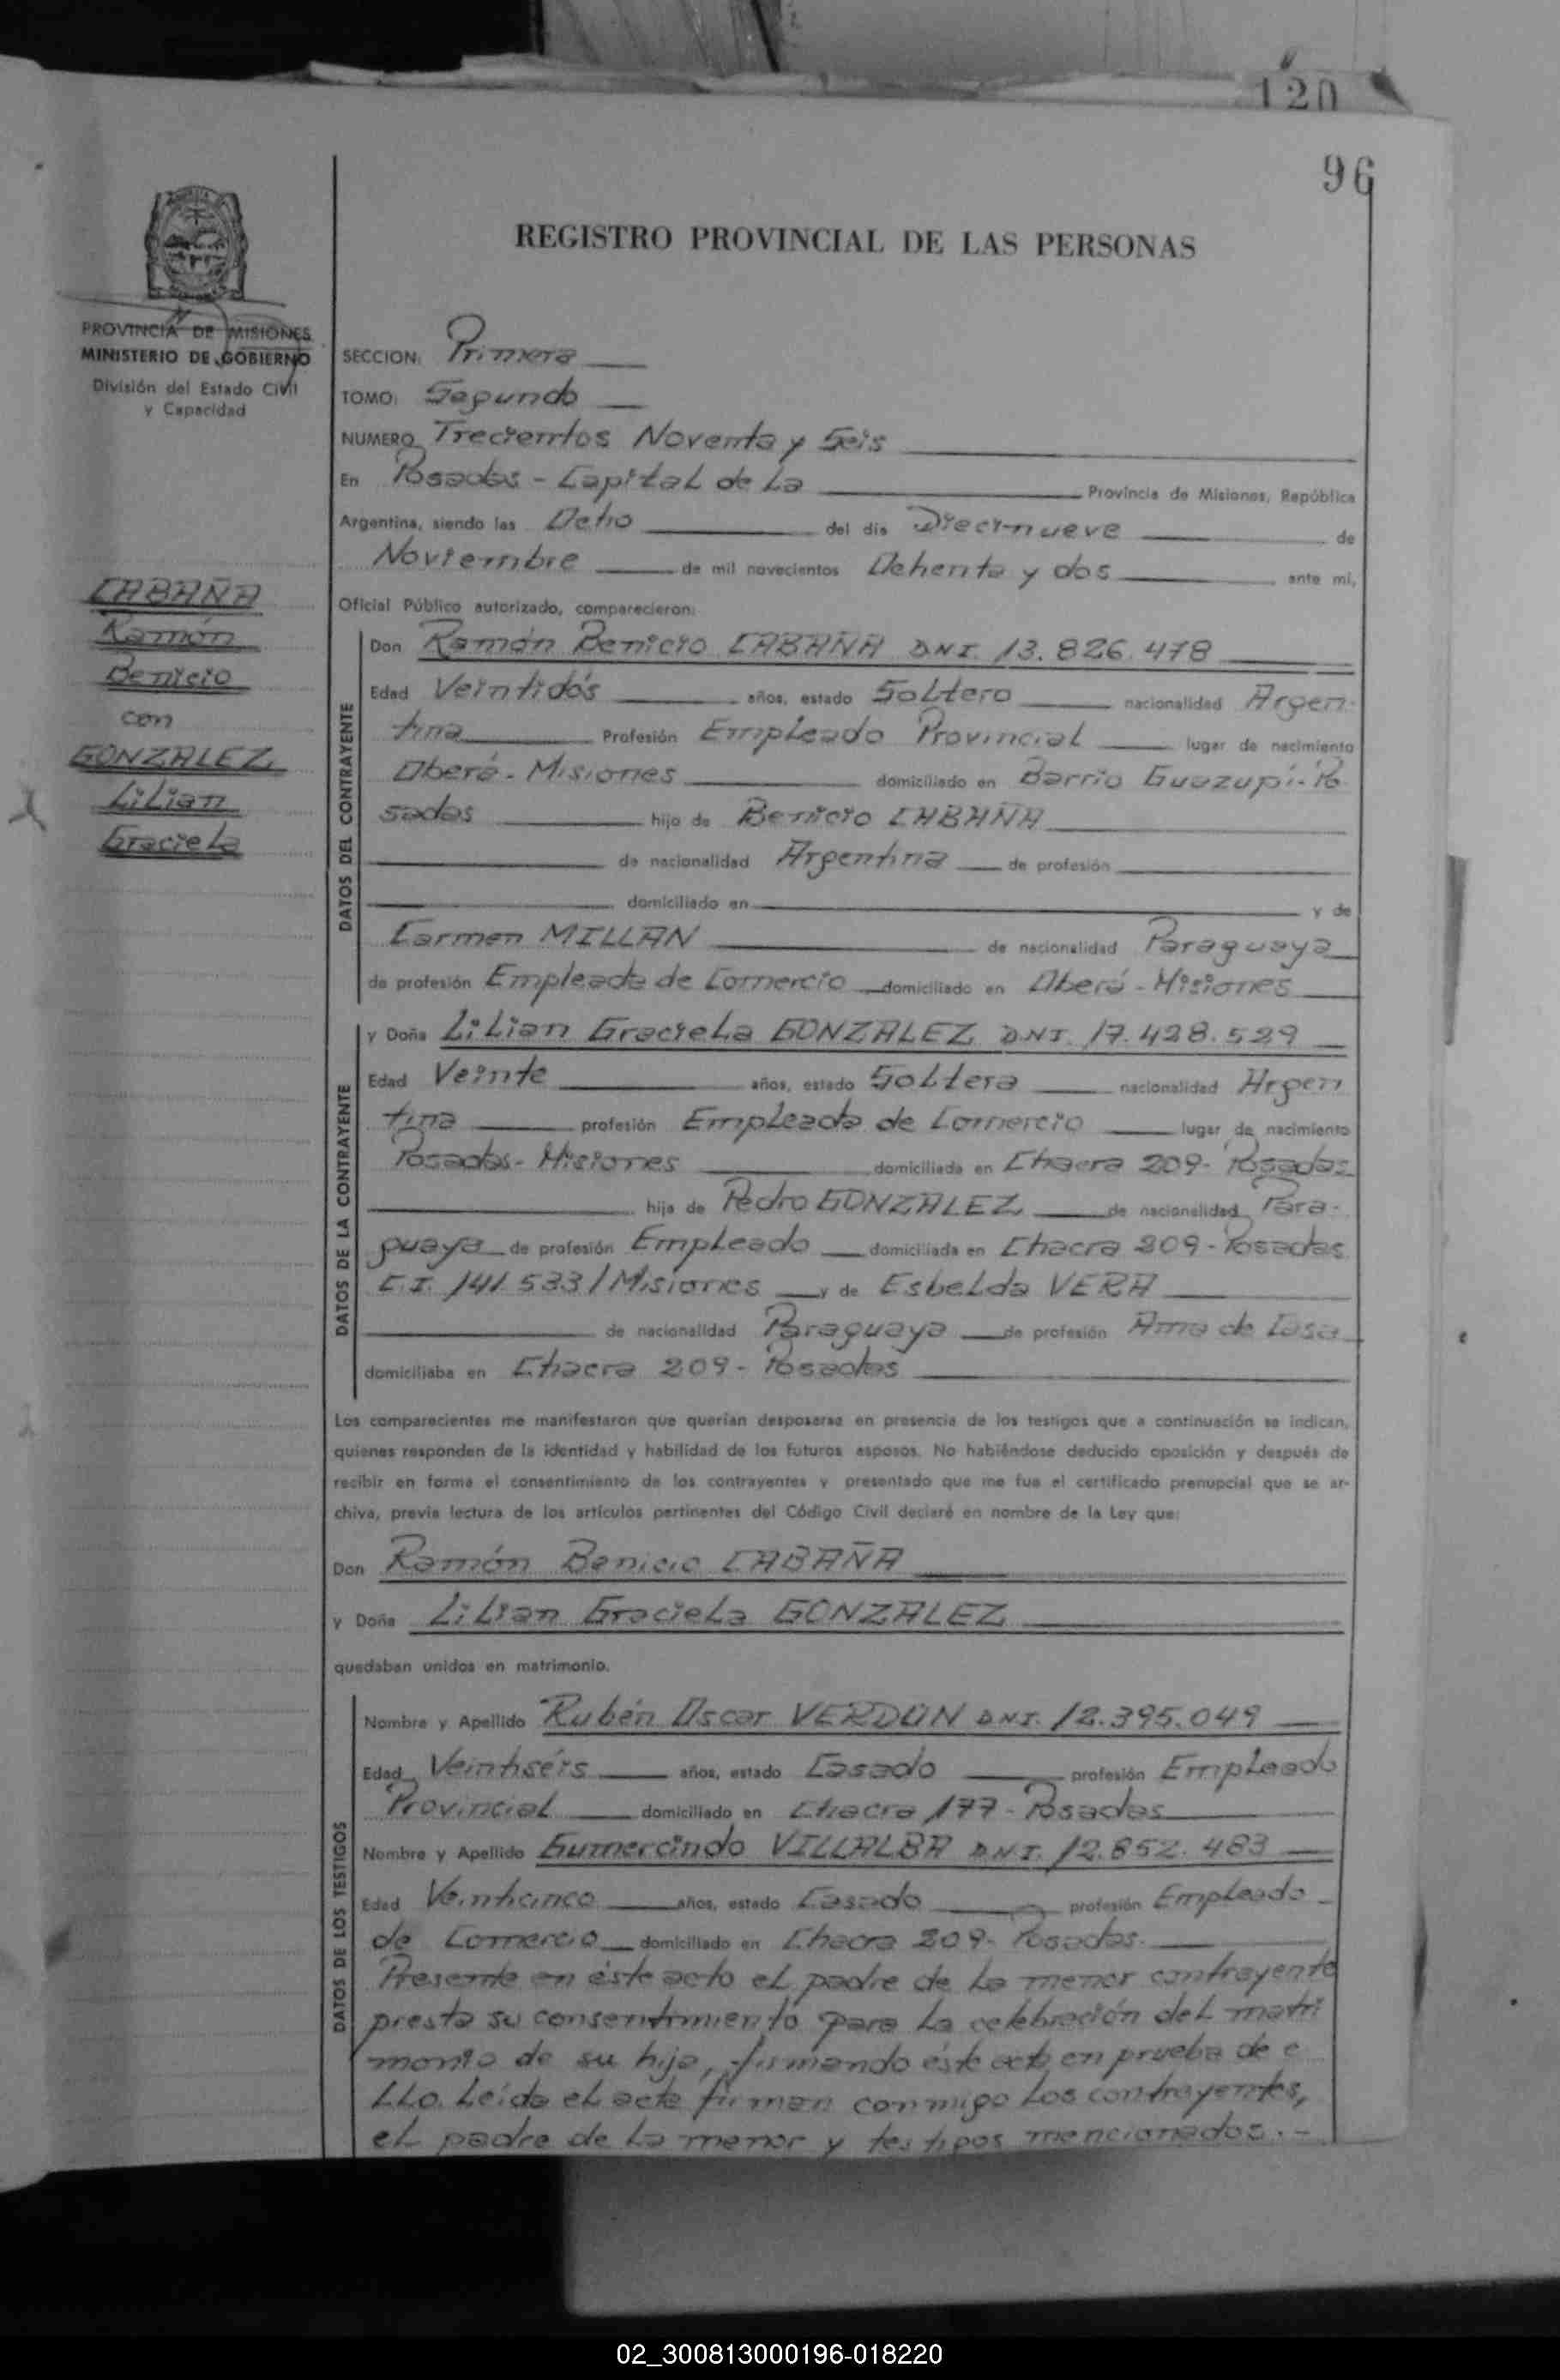 120
96
REGISTRO PROVINCIAL DE LAS PERSONAS
PROVINCIA DE MISIONES
MINISTERIO DE GOBIERNO
División del Estado Civil
y Capacidad
SECCION: Primera
TOMO: Segundo
NUMERO Trecientos Noventa y Seis
En Posadas - Capital de La Provincia de Misiones, República
Argentina, siendo las Ocho del día Diecinueve de
Noviembre de mil novecientos Ochenta y dos ante mí,
Oficial Público autorizado, comparecieron:
CABAÑA
Ramón
Benicio
con
GONZALEZ
Lilian
Graciela
DATOS DEL CONTRAYENTE
Don Ramón Benicio CABAÑA DNI. 13.826.478
Edad Veintidós años, estado Soltero nacionalidad Argen-
tina Profesión Empleado Provincial lugar de nacimiento
Oberá - Misiones domiciliado en Barrio Guazupí - Po
sadas hijo de Benicio CABAÑA
de nacionalidad Argentina de profesión
domiciliado en y de
Carmen MILLAN de nacionalidad Paraguaya
de profesión Empleada de Comercio domiciliado en Oberá - Misiones
DATOS DE LA CONTRAYENTE
y Doña Lilian Graciela GONZALEZ DNI. 17.428.529
Edad Veinte años, estado Soltera nacionalidad Argen
tina profesión Empleada de Comercio lugar de nacimiento
Posadas - Misiones domiciliada en Chacra 209 - Posadas
hija de Pedro GONZALEZ de nacionalidad Para-
guaya de profesión Empleado domiciliada en Chacra 209 - Posadas
C.I. 141.533/Misiones y de Esbelda VERA
de nacionalidad Paraguaya de profesión Ama de Casa
domiciliaba en Chacra 209 - Posadas
Los comparecientes me manifestaron que querían desposarse en presencia de los testigos que a continuación se indican,
quienes responden de la identidad y habilidad de los futuros esposos. No habiéndose deducido oposición y después de
recibir en forma el consentimiento de los contrayentes y presentado que me fue el certificado prenupcial que se ar-
chiva, previa lectura de los artículos pertinentes del Código Civil declaré en nombre de la Ley que:
Don Ramón Benicio CABAÑA
y Doña Lilian Graciela GONZALEZ
quedaban unidos en matrimonio.
DATOS DE LOS TESTIGOS
Nombre y Apellido Rubén Oscar VERDUN DNI. 12.395.049
Edad Veintiséis años, estado Casado profesión Empleado
Provincial domiciliado en Chacra 177 - Posadas
Nombre y Apellido Gumercindo VILLALBA DNI. 12.852.483
Edad Veinticinco años, estado Casado profesión Empleado
de Comercio domiciliado en Chacra 209 - Posadas.
Presente en éste acto el padre de la menor contrayente
presta su consentimiento para la celebración del matri
monio de su hija, firmando éste acto en prueba de e
llo. Leída el acta firman conmigo los contrayentes,
el padre de la menor y testigos mencionados.-
02_300813000196-018220